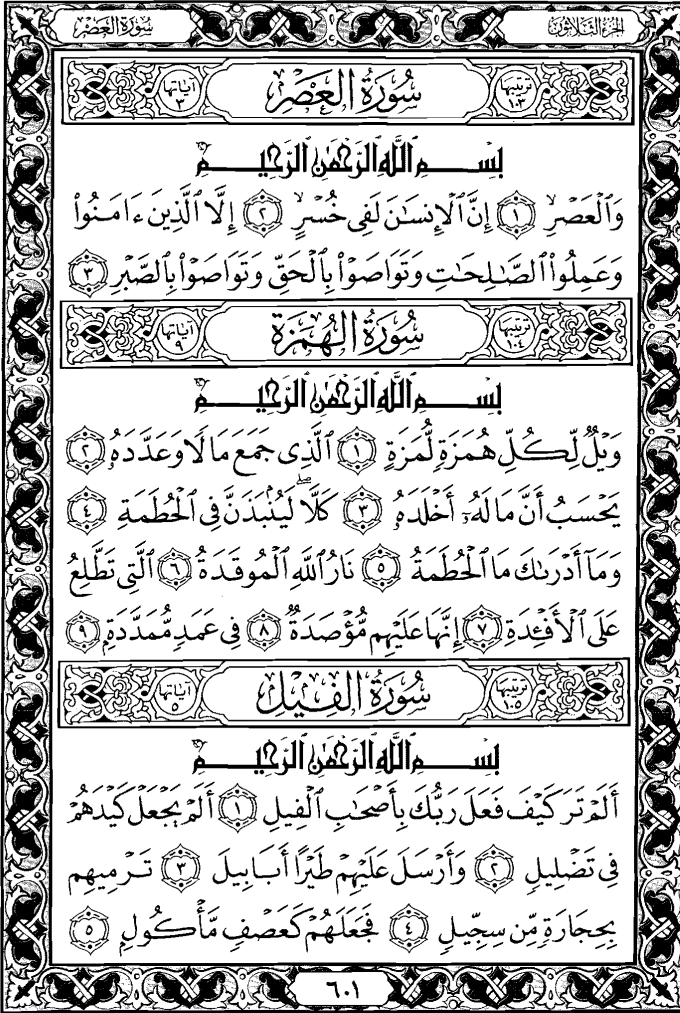 الجزء الثلاثون
سورة العصر
ترتيبها ١٠٣ سُورَةُ العَصْرِ آياتها ٣
بِسْمِ ٱللَّهِ ٱلرَّحْمَٰنِ ٱلرَّحِيمِ
وَٱلْعَصْرِ ۝١ إِنَّ ٱلْإِنسَٰنَ لَفِى خُسْرٍ ۝٢ إِلَّا ٱلَّذِينَ ءَامَنُوا۟
وَعَمِلُوا۟ ٱلصَّٰلِحَٰتِ وَتَوَاصَوْا۟ بِٱلْحَقِّ وَتَوَاصَوْا۟ بِٱلصَّبْرِ ۝٣
ترتيبها ١٠٤ سُورَةُ الهُمَزَةِ آياتها ٩
بِسْمِ ٱللَّهِ ٱلرَّحْمَٰنِ ٱلرَّحِيمِ
وَيْلٌ لِّكُلِّ هُمَزَةٍ لُّمَزَةٍ ۝١ ٱلَّذِى جَمَعَ مَالًا وَعَدَّدَهُۥ ۝٢
يَحْسَبُ أَنَّ مَالَهُۥٓ أَخْلَدَهُۥ ۝٣ كَلَّا ۖ لَيُنۢبَذَنَّ فِى ٱلْحُطَمَةِ ۝٤
وَمَآ أَدْرَىٰكَ مَا ٱلْحُطَمَةُ ۝٥ نَارُ ٱللَّهِ ٱلْمُوقَدَةُ ۝٦ ٱلَّتِى تَطَّلِعُ
عَلَى ٱلْأَفْـِٔدَةِ ۝٧ إِنَّهَا عَلَيْهِم مُّؤْصَدَةٌ ۝٨ فِى عَمَدٍ مُّمَدَّدَةٍۭ ۝٩
ترتيبها ١٠٥ سُورَةُ الفِيلِ آياتها ٥
بِسْمِ ٱللَّهِ ٱلرَّحْمَٰنِ ٱلرَّحِيمِ
أَلَمْ تَرَ كَيْفَ فَعَلَ رَبُّكَ بِأَصْحَٰبِ ٱلْفِيلِ ۝١ أَلَمْ يَجْعَلْ كَيْدَهُمْ
فِى تَضْلِيلٍ ۝٢ وَأَرْسَلَ عَلَيْهِمْ طَيْرًا أَبَابِيلَ ۝٣ تَرْمِيهِم
بِحِجَارَةٍ مِّن سِجِّيلٍ ۝٤ فَجَعَلَهُمْ كَعَصْفٍ مَّأْكُولٍۭ ۝٥
٦٠١